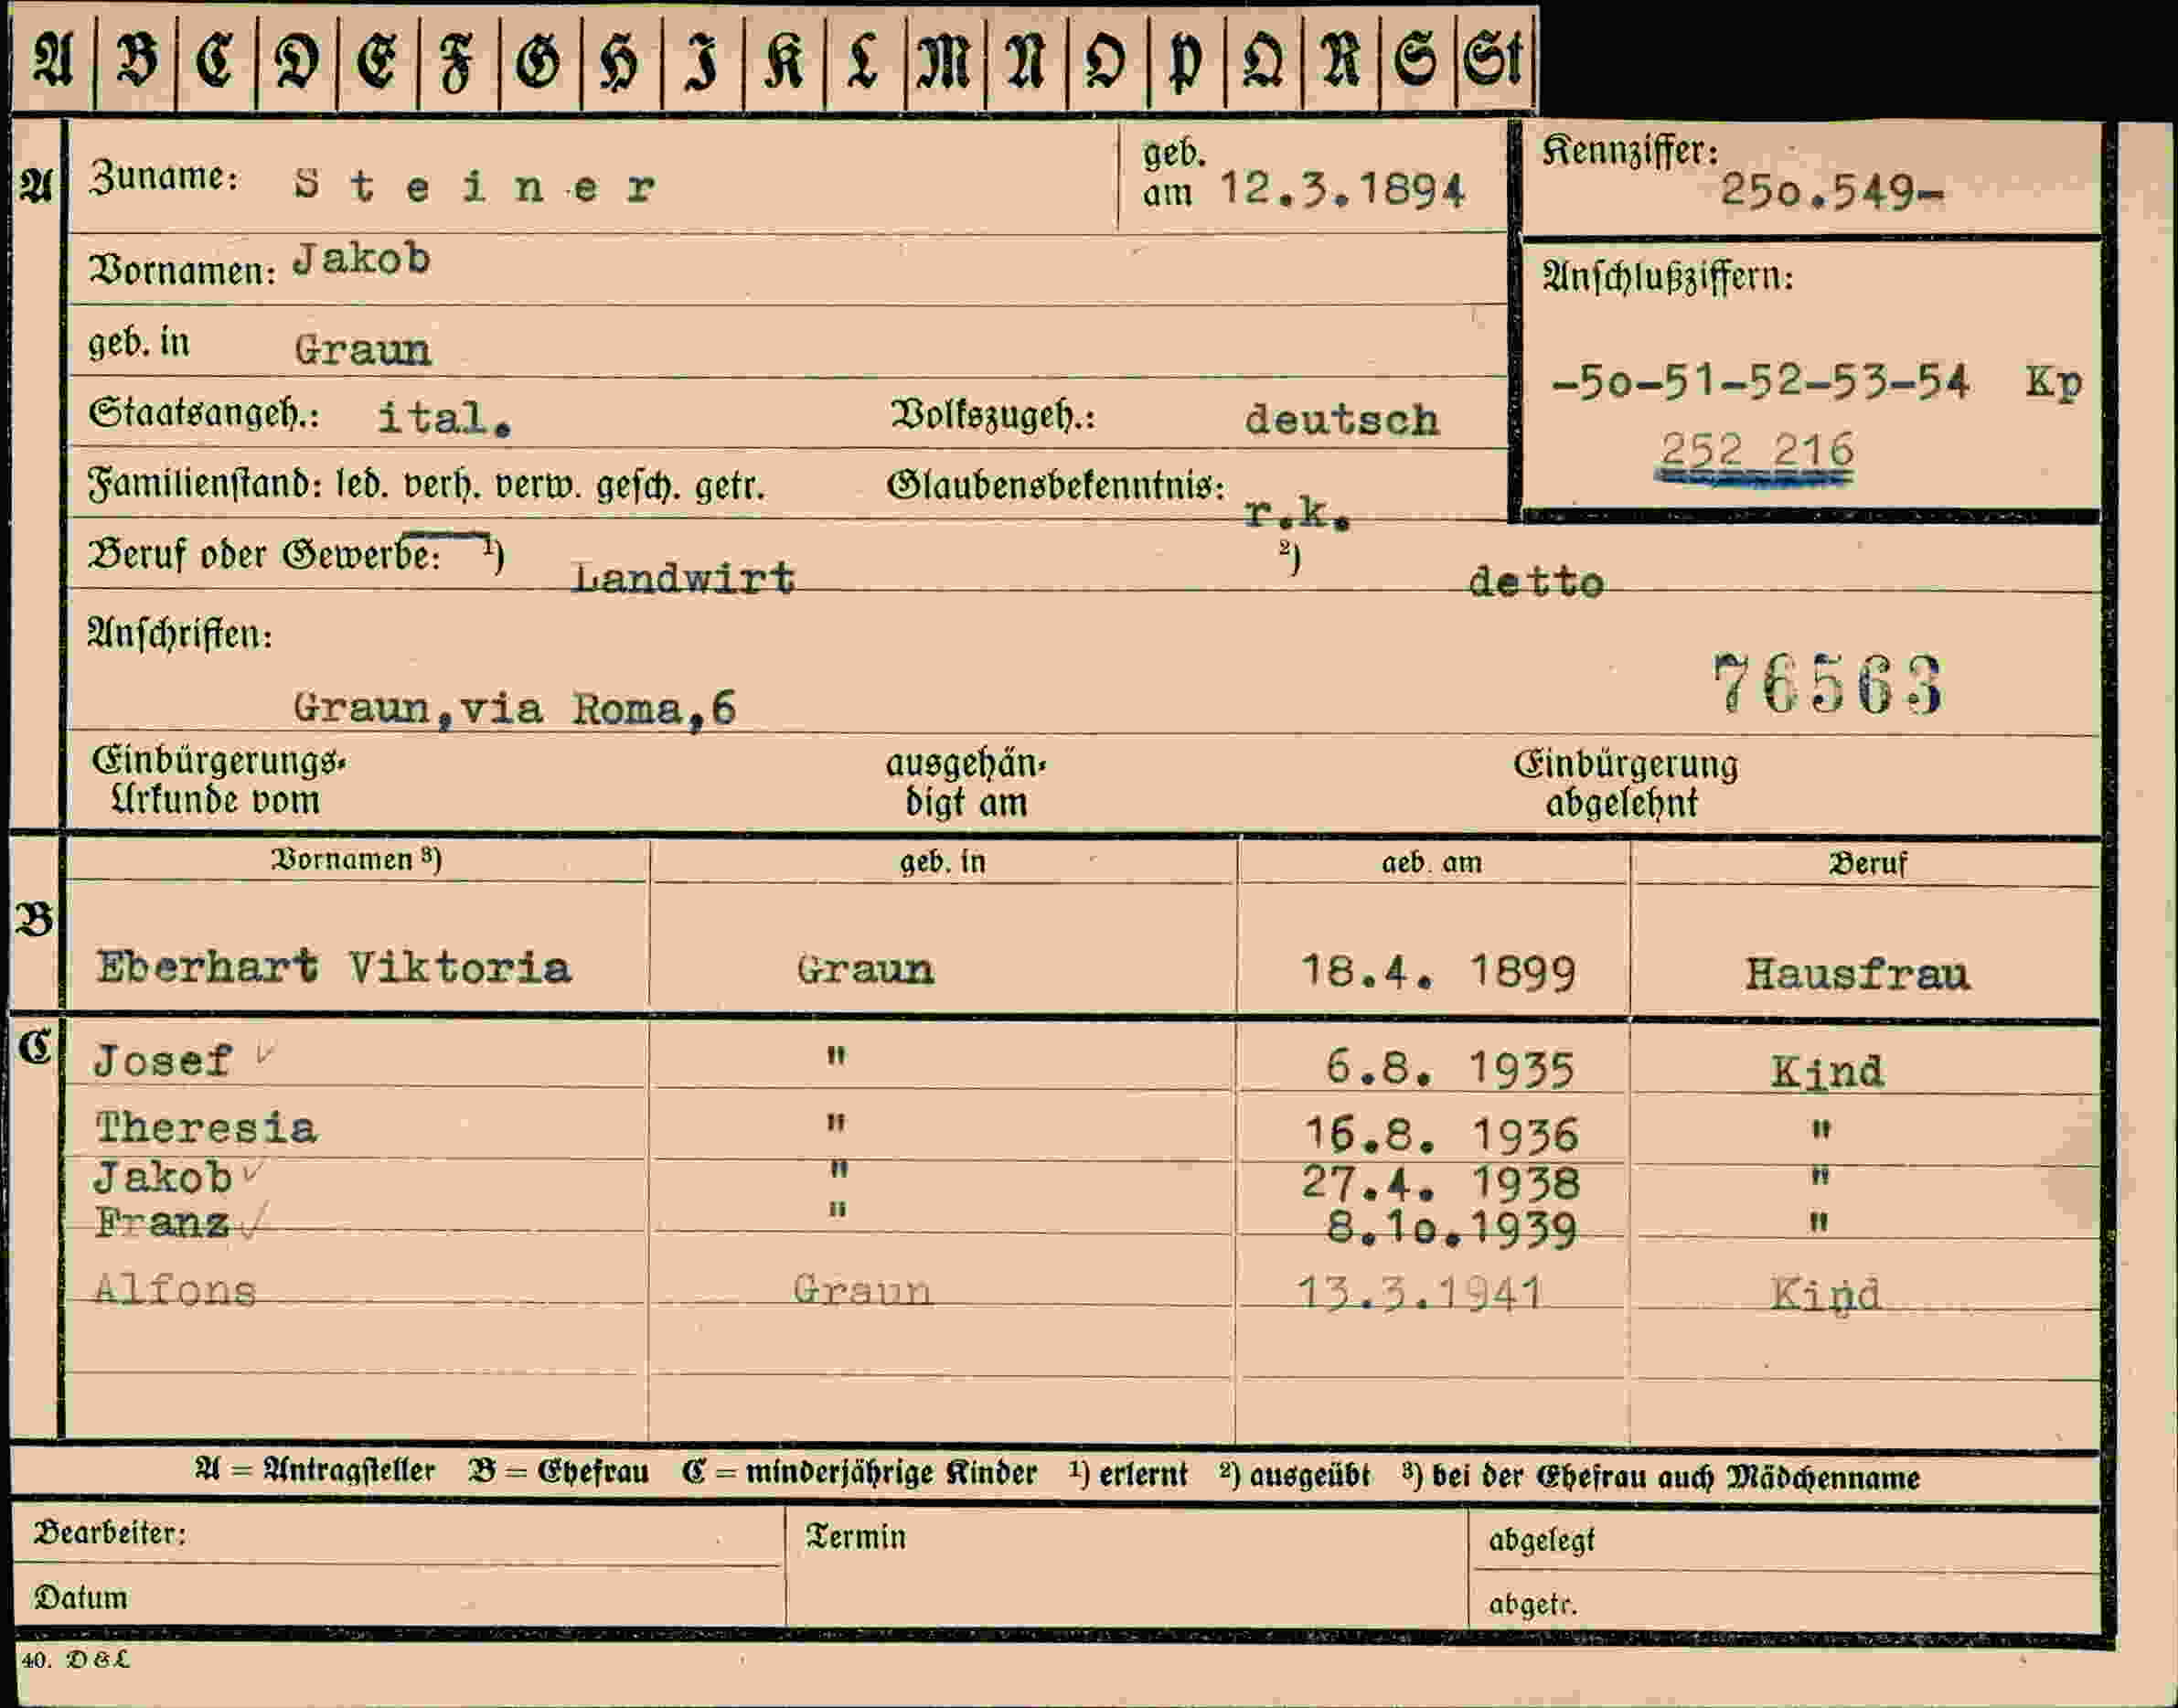 A B C D E F G H I K L M N O P Q R S St
A Zuname: Steiner geb. am 12.3.1894 Kennziffer: 25o.549-
Vornamen: Jakob
Anschlußziffern:
geb. in Graun
-5o-51-52-53-54 Kp
Staatsangeh.: ital. Volkszugeh.: deutsch
252 216
Familienstand: led. verh. verw. gesch. getr. Glaubensbekenntnis: r.k.
Beruf oder Gewerbe: 1) Landwirt 2) detto
Anschriften:
76563
Graun,via Roma,6
Einbürgerungs- ausgehän- Einbürgerung
Urkunde vom digt am abgelehnt
Vornamen 3) geb. in geb. am Beruf
B
Eberhart Viktoria Graun 18.4. 1899 Hausfrau
C Josef ✓ " 6.8. 1935 Kind
Theresia " 16.8. 1936 "
Jakob ✓ " 27.4. 1938 "
Franz ✓ " 8.1o.1939 "
Alfons Graun 13.3.1941 Kind
A = Antragsteller B = Ehefrau C = minderjährige Kinder 1) erlernt 2) ausgeübt 3) bei der Ehefrau auch Mädchenname
Bearbeiter: Termin abgelegt
Datum abgetr.
40. D&L